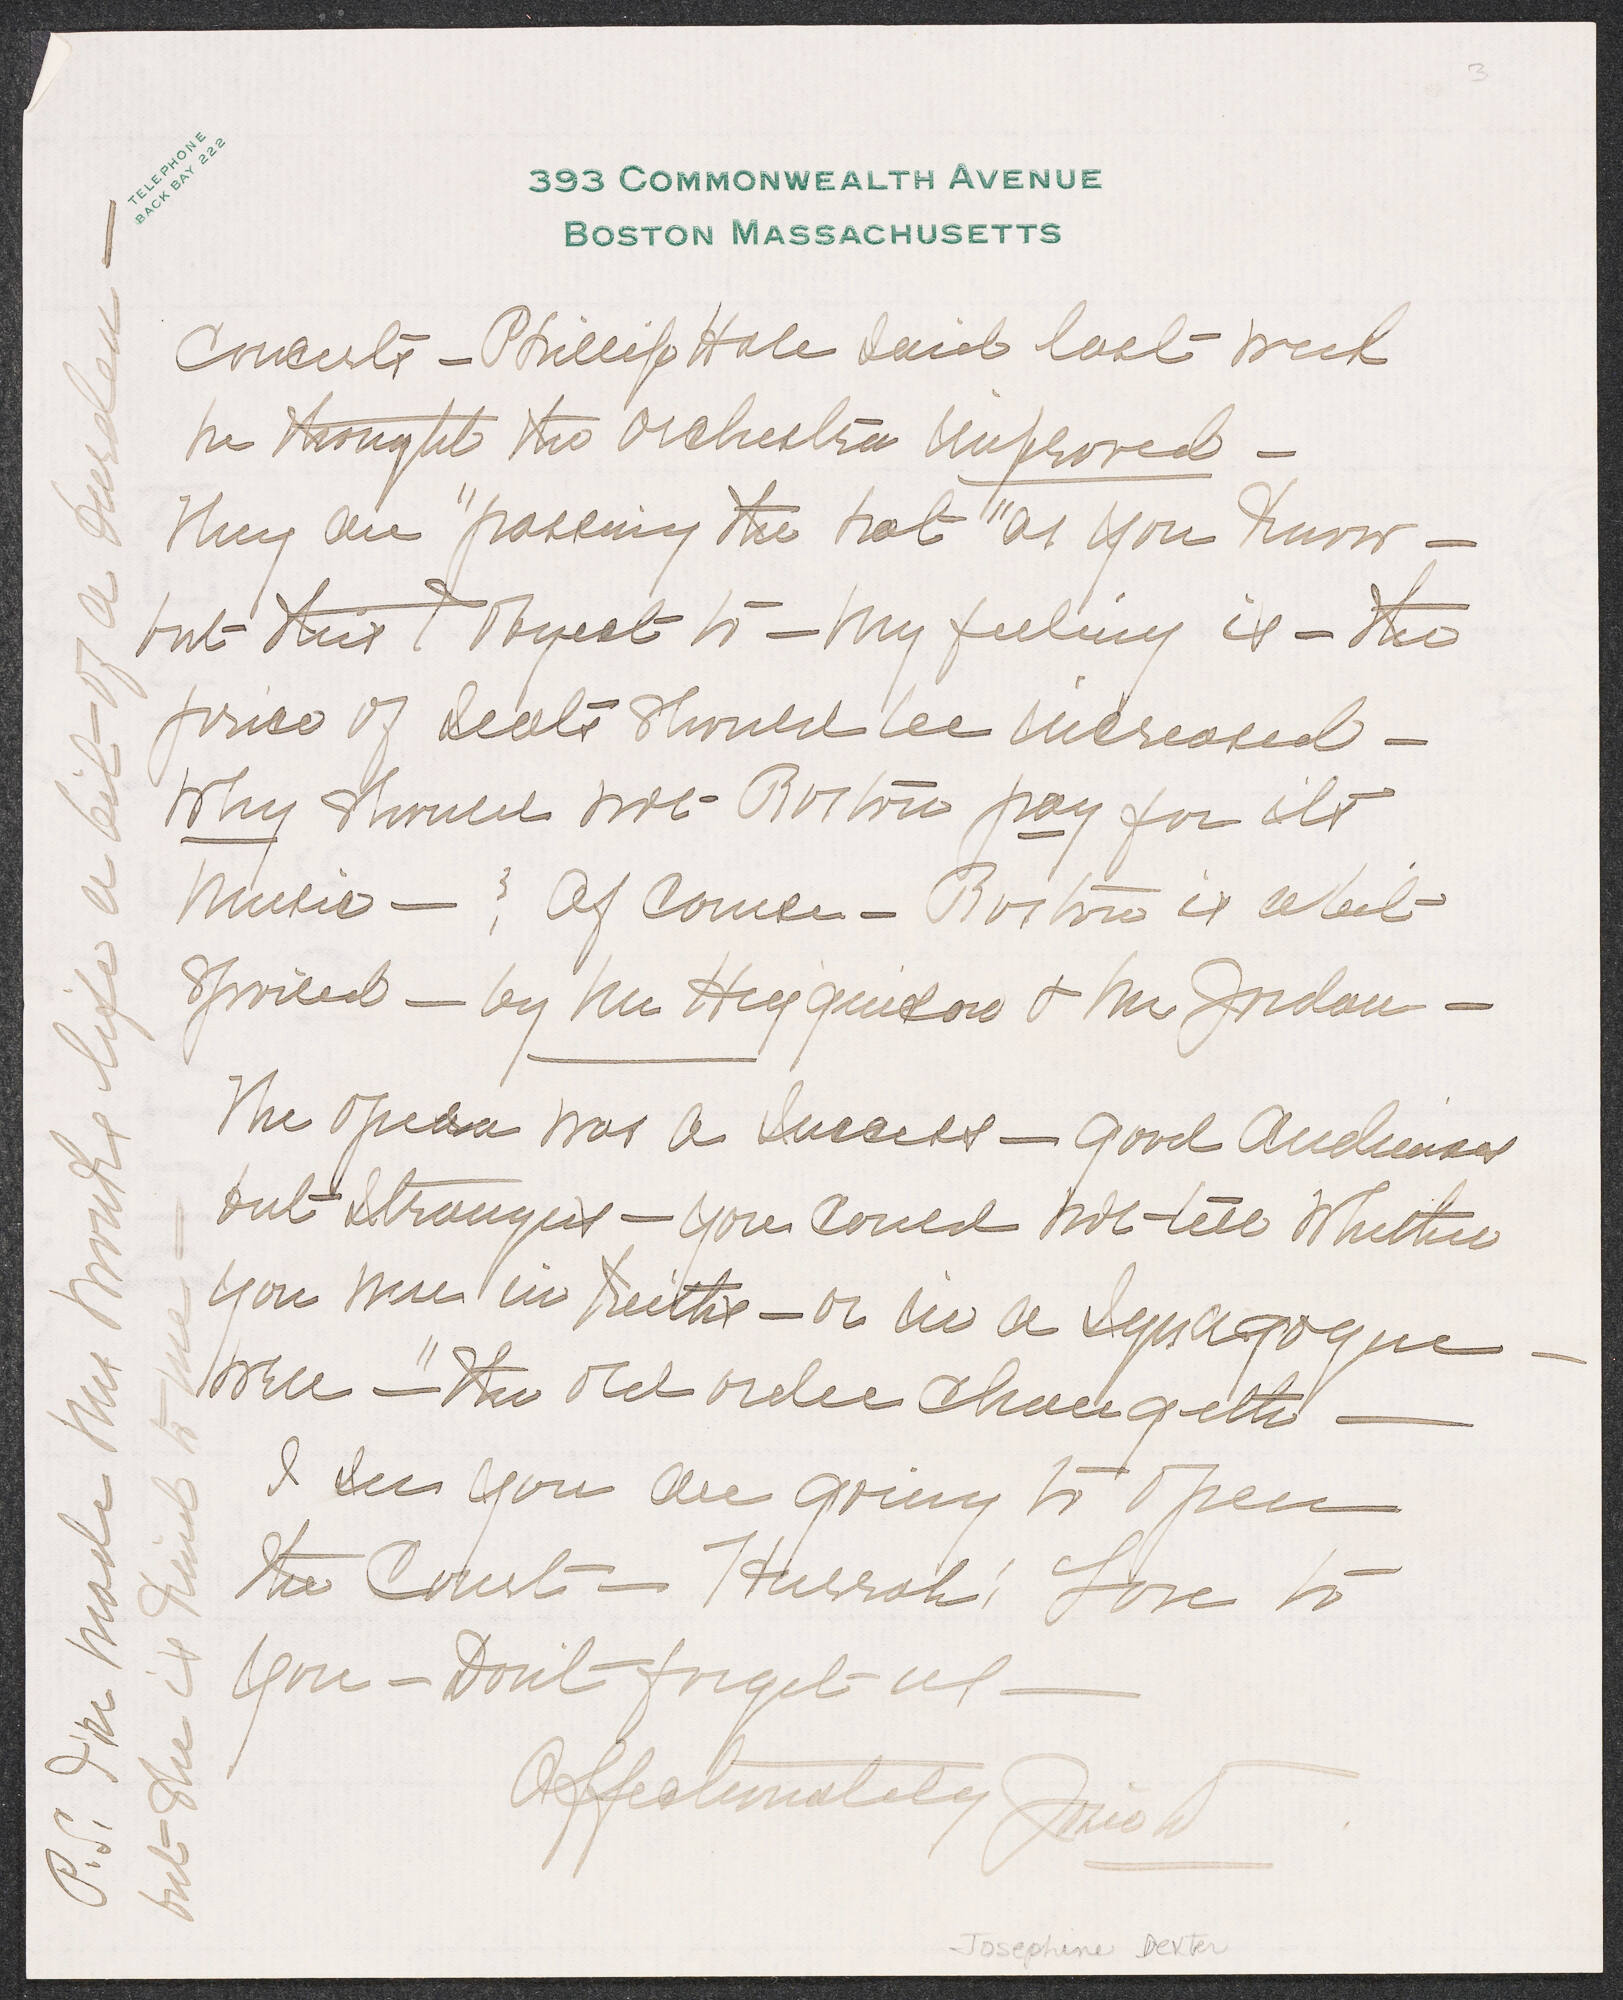 3
TELEPHONE
BACK BAY 222
393 COMMONWEALTH AVENUE
BOSTON MASSACHUSETTS
Concerts — Phillip Hale said last week
he thought the orchestra improved —
They are "passing the hat" as you know —
but this I object to — my feeling is — the
price of seats should be increased —
Why should not Boston pay for its
music — ? Of course — Boston is a bit
spoiled — by Mr Higginson & Mr Jordan —
The opera was a success — good audiences
but strangers — you could not tell whether
you were in Keiths — or in a Synagogue —
well — "the old order changeth —
I see you are going to open
the Court — Hurrah! Love to
you — Don't forget us —
Affectionately Josie D
Josephine Dexter
P.S. made life a bit of a burden —
but she is kind to me —